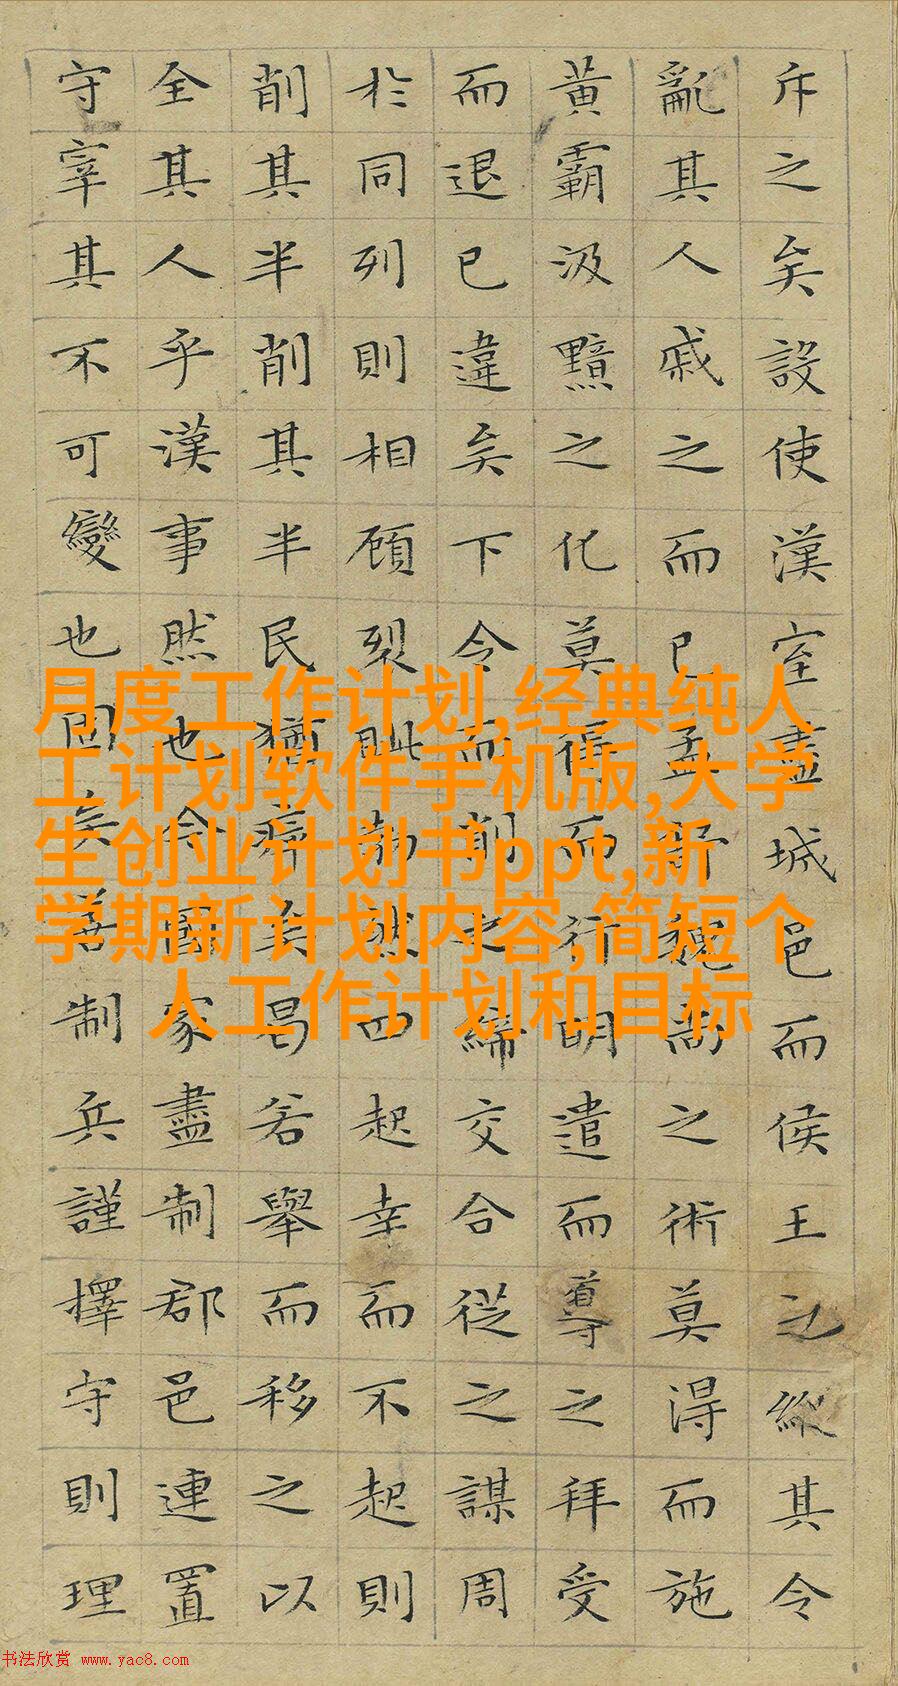 斥之矣設使漢室盡城邑而侯王之縱其令
亂其人戚之而已孟舒魏尚之術莫得而施
黃霸汲黯之化莫得而行明遣而導之拜受
而退已違矣下令而削之締交合從之謀周
於同列則相顧裂眦勃然四起幸而不起則
削其半削其半民猶瘁矣曷若舉而移之以
全其人乎漢事然也今國家盡制郡邑連置
守宰其不可變也固矣善制兵謹擇守則理
月度工作计划,经典纯人
工计划软件手机版,大学
生创业计划书ppt,新
学期新计划内容,简短个
人工作计划和目标
书法欣赏 www.yac8.com